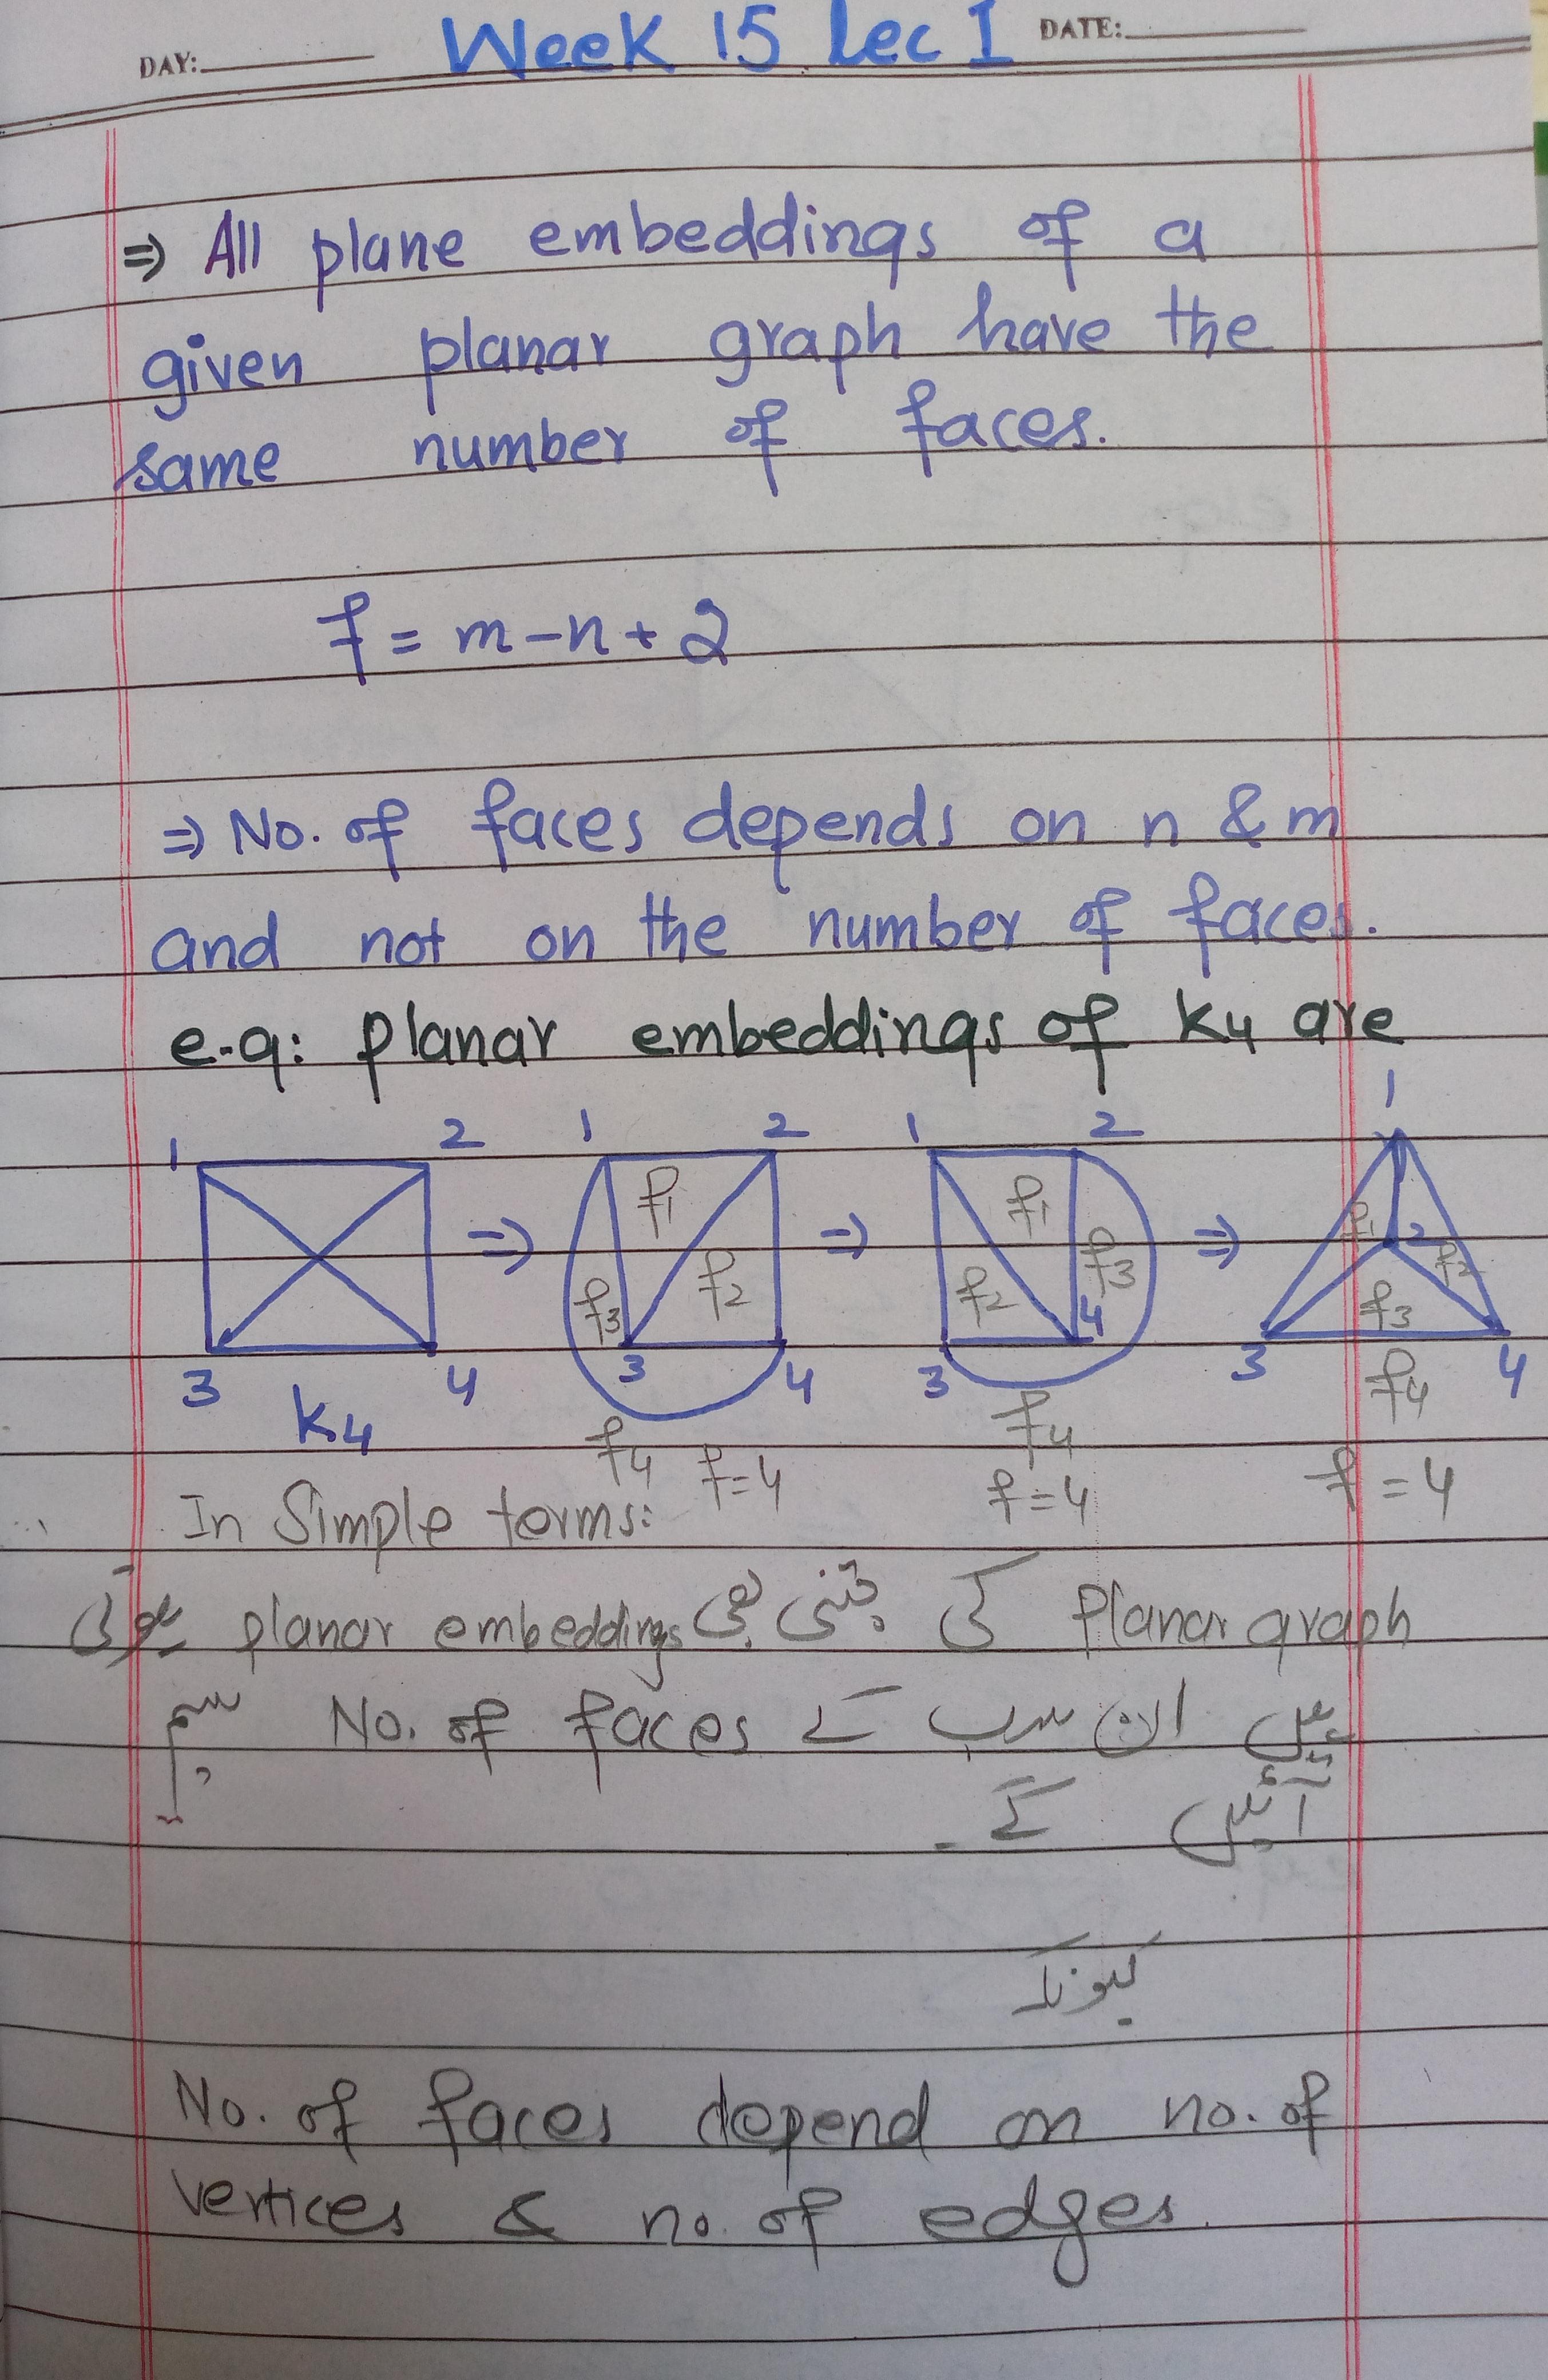 DAY: Week 15 Lec 1 DATE:
⇒ All plane embeddings of a
given planar graph have the
same number of faces.
f = m - n + 2
⇒ No. of faces depends on n & m
and not on the number of faces.
e.g: planar embeddings of K4 are
1 2 ⇒ 1 2 ⇒ 1 2 ⇒ 1
f1 f2 f3 f1 f2 f3 f1 2 f2 f3
3 4 3 4 3 4 3 4
K4 f4 f4 f4
f=4 f=4 f=4
In Simple terms:
Planar graph کی جتنی بھی planar embeddings ہوتی
ہیں ان سب کے No. of faces سیم
آئیں گے۔
کیونکہ
No. of faces depend on no. of
vertices & no. of edges.